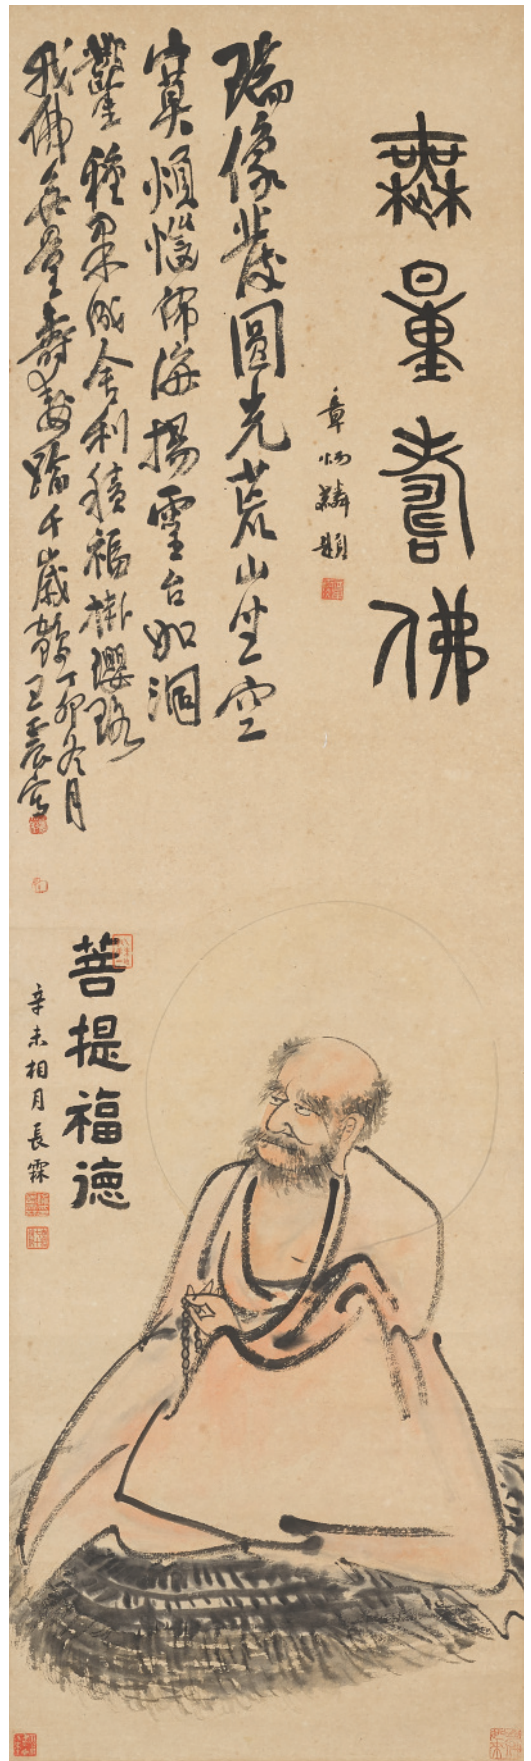 無量壽佛
章炳麟題
瑞像發圓光荒山坐空
寞煩惱佛海揚靈台如洞
鑿種果成舍利積福掛瓔珞
我佛無量壽數踰千歲鶴
丁卯冬月
王震寫
菩提福德
辛未相月長霖